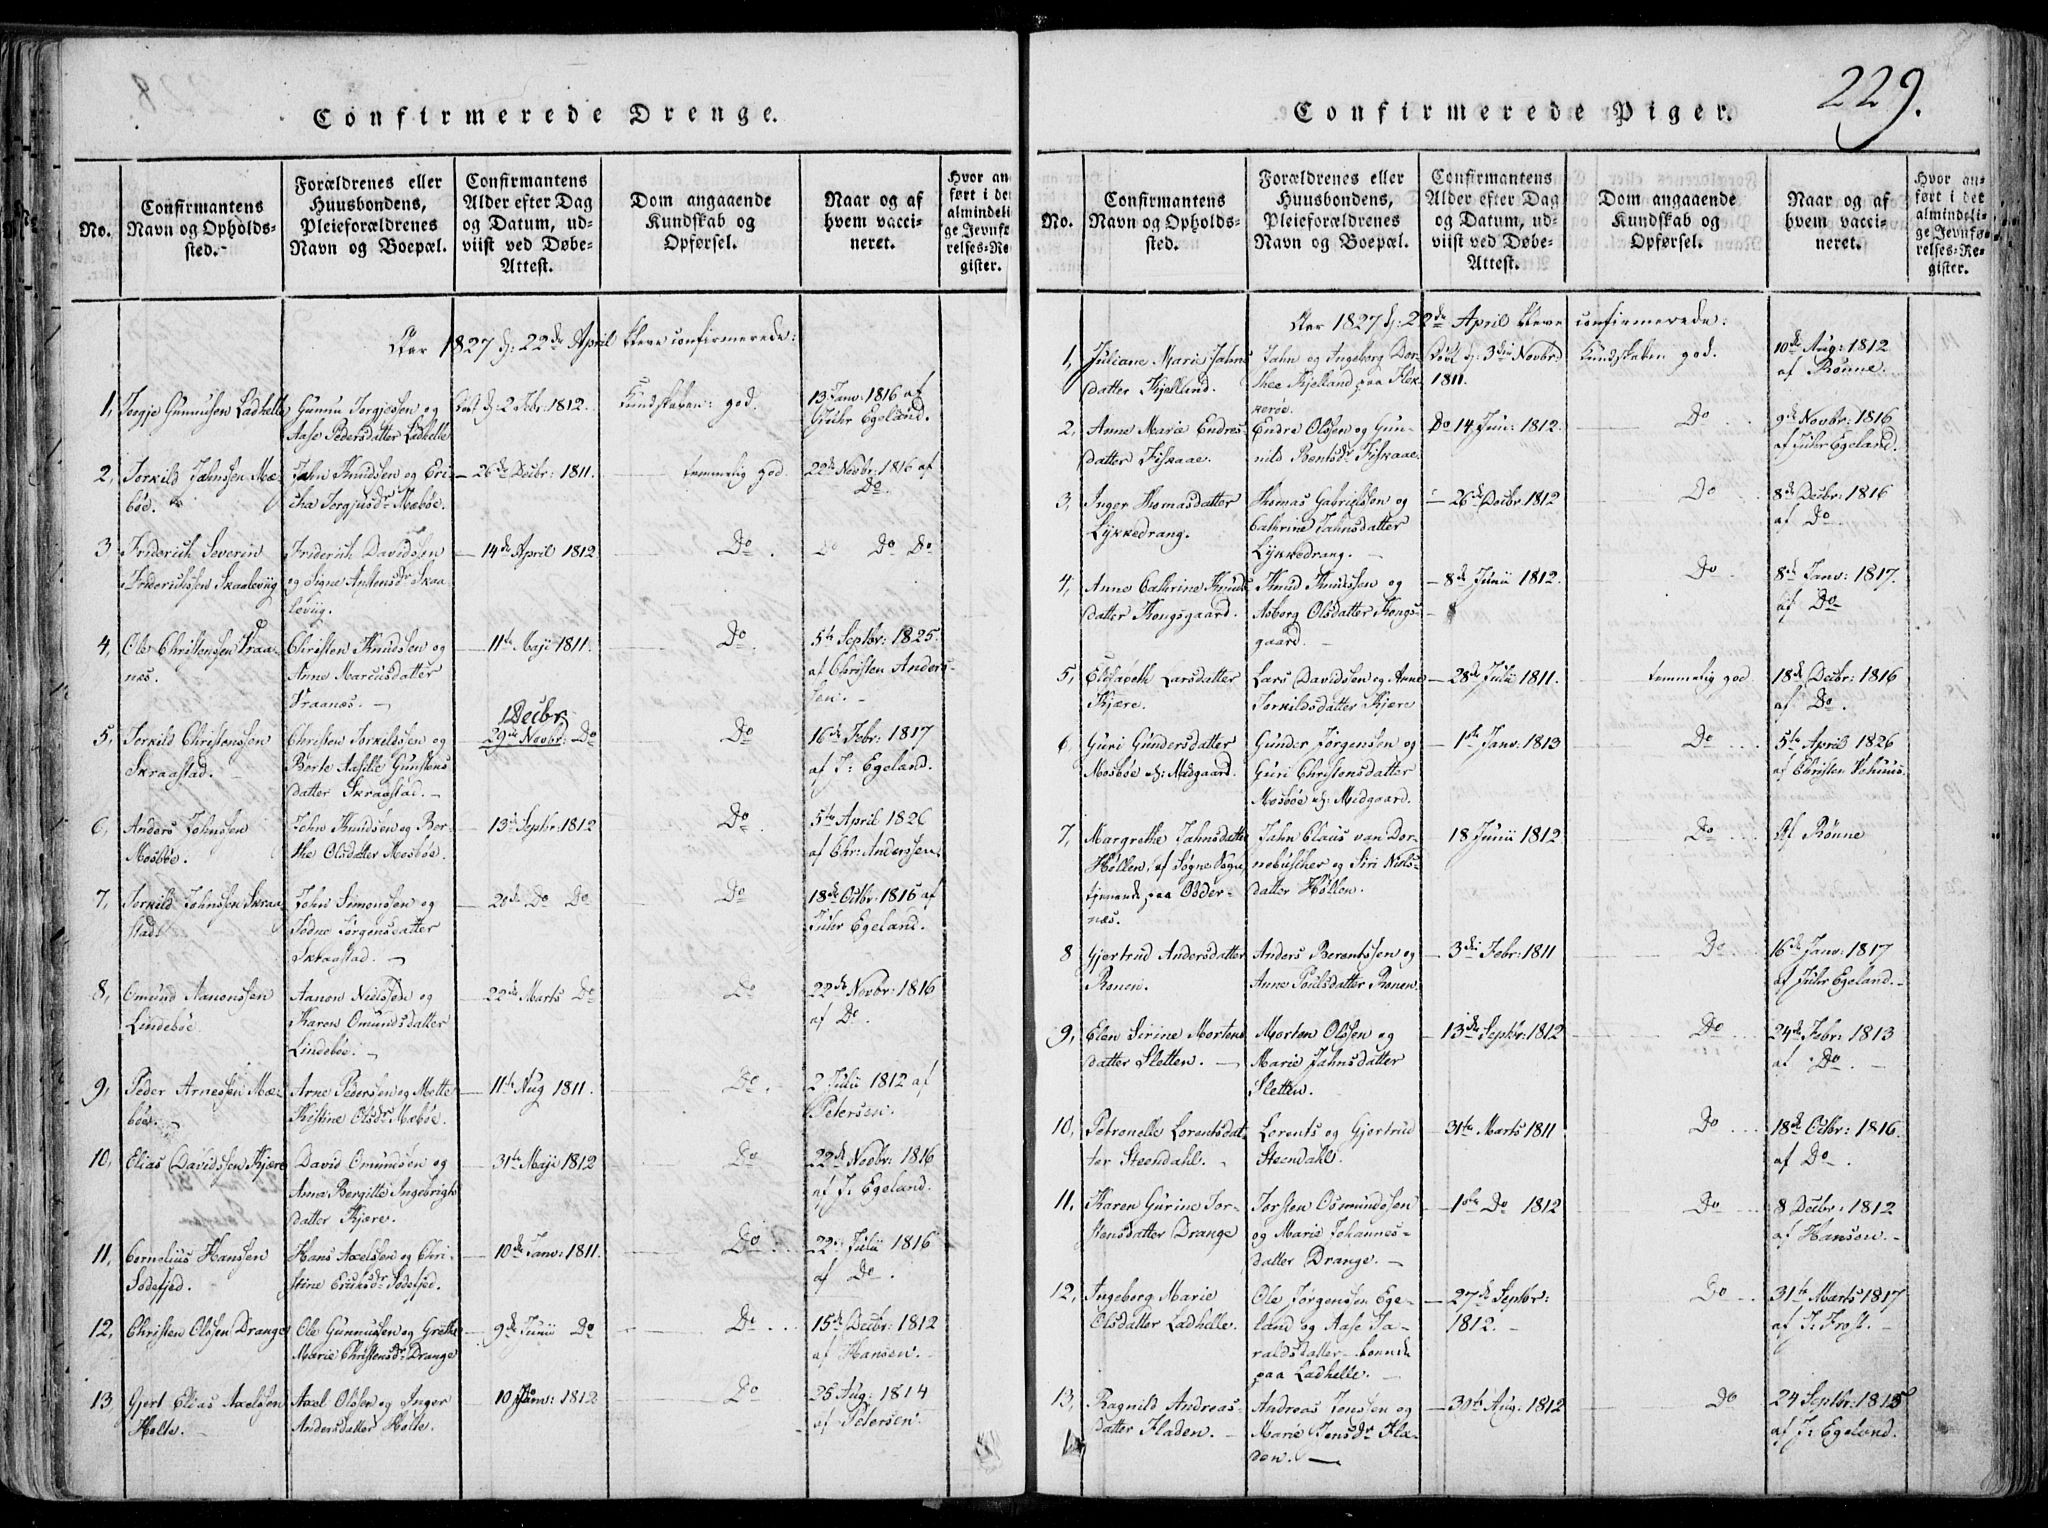 229.
Confirmerede Drenge.
No.
Confirmantens
Navn og Opholds-
sted.
Forældrenes eller
Huusbondens,
Pleieforældrenes
Navn og Boepæl.
Confirmantens
Alder efter Dag
og Datum, ud-
viist ved Døbe-
Attest.
Dom angaaende
Kundskab og
Opførsel.
Naar og af
hvem vacci-
neret.
Hvor an-
ført i det
almindeli-
ge Jevnfø-
relses-Re-
gister.
Aar 1827 d: 22de April bleve confirmerede:
1, Tergje Gunnusen Ladhelle
Gunnu Torgjessen og
Aase Pedersdatter Ladhelle
d: 2 Febr: 1812.
Kundskaben: god.
13 Janv: 1816 af
Juhr Egeland.
2, Torkild Jahnsen Mæ-
böe.
Jahn Knudsen og Eri-
cha Torgjusdr Mæböe.
26de Decbr: 1811.
temmelig god.
22de Novbr: 1816 af
Do.
3 Friderich Severin
Friderichsen Skaaleviig
Friderich Davidsen
og Signe Anstensdr Skaa-
leviig.
14de April 1812
Do.
Do Do Do
4, Ole Christensen Kraa-
næs.
Christen Knudsen og
Anne Marcusdatter
Kraanæs.
11te Maji 1811.
Do.
5te Septbr: 1825.
af Christen Anders-
sen.
5, Torkild Christensen
Skraastad.
Christen Torkeldsen og
Berte Aasille Gunstens
datter Skraastad.
1 Decbr
29de Novbr: Do
Do
16de Febr: 1817
af J: Egeland.
6, Anders Johnsen
Mosböe.
John Knudsen og Ber-
the Olsdatter Mosböe.
13de Septbr: 1812
Do.
5te April 1826
af Chr: Anderssen.
7, Torkild Johnsen Skraa-
stad.
John Simonsen og
Todne Jörgensdatter
Skraastad.
20de Do Do
Do
18de Octbr: 1816 af
Juhr Egeland.
8, Omund Aanonsen
Lindeböe.
Aanon Nielssen og
Karen Omundsdatter
Lindeböe.
22de Marts Do
Do
22de Novbr: 1816
af Do.
9, Peder Arnesen Mæ-
böe.
Arne Pedersen og Mette
Kistine Olsdr Mæböe.
11te Aug 1811.
Do.
2 Julii 1812 af
Petersen.
10, Elias Davidsen Kjære
David Omundsen og
Anna Bergitte Ingebrigts
datter Kjære.
31te Maji 1812
Do
22de Novbr: 1816
af J: Egeland.
11, Cornelius Hanssen
Sodefjed.
Hans Axelsen og Chri-
stine Ericksdr Sodefjed.
10de Janv: 1811.
Do.
22 Julii 1816
af Do.
12, Christen Olssen Drange
Ole Gunnusen og Grethe
Marie Christensdr Drange
9de Junii Do
Do
15de Decbr: 1812
af Hansen.
13, Gjert Elias Axelsen
Holte.
Axel Olssen og Inger
Andersdatter Holte.
10 Janv: 1812
Do
25 Aug: 1814
af Petersen.
Confirmerede Piger.
No.
Confirmantens
Navn og Opholds-
sted.
Forældrenes eller
Huusbondens,
Pleieforældrenes
Navn og Boepæl.
Confirmantens
Alder efter Dag
og Datum, ud-
viist ved Døbe-
Attest.
Dom angaaende
Kundskab og
Opførsel.
Naar og af
hvem vacci-
neret.
Hvor an-
ført i det
almindeli-
ge Jevnfø-
relses-Re-
gister.
Aar 1827 d: 22de April bleve confirmerede:
1, Juliane Marie Jahns
datter Kjelland.
Jahn og Ingeborg Dor-
thee Kjelland paa Flek-
keröe.
Döbt d: 3die Novbr:
1811.
Kundskaben god.
10de Aug: 1812
af Rönne.
2, Anne Marie Endres-
datter Fiskaae.
Endre Olssen og Gun-
nild Bentsdr Fiskaae.
Do 14 Jun: 1812.
Do
9de Novbr: 1816
af Juhr Egeland.
3, Inger Thomasdatter
Lykkedrang.
Thomas Gabrielsen og
Cathrine Jahnsdatter
Lykkedrang.
26de Decbr 1812
Do
8de Decbr: 1816
af Do.
4, Anne Cathrine Knuds
datter Kongsgaard.
Knud Knudsen og
Asborg Olsdatter Kongs-
gaard.
8de Junii 1812.
Do
8de Janv: 1817.
af Do.
5, Elisabeth Larsdatter
Kjære.
Lars Davidsen og Anne
Torkildsdatter Kjære
28de Julii 1811.
temmelig god
18de Decbr: 1816
af Do.
6 Guri Gundersdatter
Mosböe d: Midgaard.
Gunder Jörgensen og
Guri Christensdatter
Mosböe d: Midgaard.
1ste Janv: 1813
Do
5te April 1826
af Christen
7, Margrethe Jahnsdatter
Höllen, af Søgne Sogn,
tjenende paa Odder-
næs.
Jahn Claus van Dor-
nebuscher og Siri Niels-
datter Höllen.
18 Junii 1812
Do
Af Rönne
8 Gjertrud Andersdatter
Ronen.
Anders Berentssen og
Anne Poulsdatter Ronen.
3die Febr: 1811
Do
16de Janv: 1817
af Juhr Egeland.
9, Elen Serine Mortens
datter Sletten.
Morten Olssen og
Marie Jahnsdatter
Sletten.
13de Septbr: 1812
Do
24de Febr: 1813
af Do.
10, Petronelle Lorentsdat-
ter Steendahl.
Lorents og Gjertrud
Steendahl.
31te Marts 1811
Do
18de Octbr: 1816.
af Do.
11, Karen Gurine Tor-
stensdatter Drange
Torsten Osmundssen
og Marie Johannes-
datter Drange.
1ste Do 1812
Do
8 Decbr: 1812
af Hansen.
12, Ingeborg Marie
Olsdatter Ladhelle.
Ole Jörgensen Ege-
land og Aase Ta-
raldsdatter boende
paa Ladhelle.
27de Septbr:
1812.
Do
31te Marts 1817
af J: Frost.
13, Ragnild Andreas-
datter Fladen.
Andreas Jenssen og
Marie Jensdr Fla-
den.
30te Aug: 1812
Do
24 Septbr: 1815
af J: Egeland.